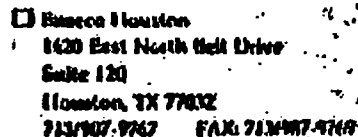 Houston
1420 East North Belt Drive
Suite 120
Houston, TX 77032
713/987-9767 FAX: 713/987-9769